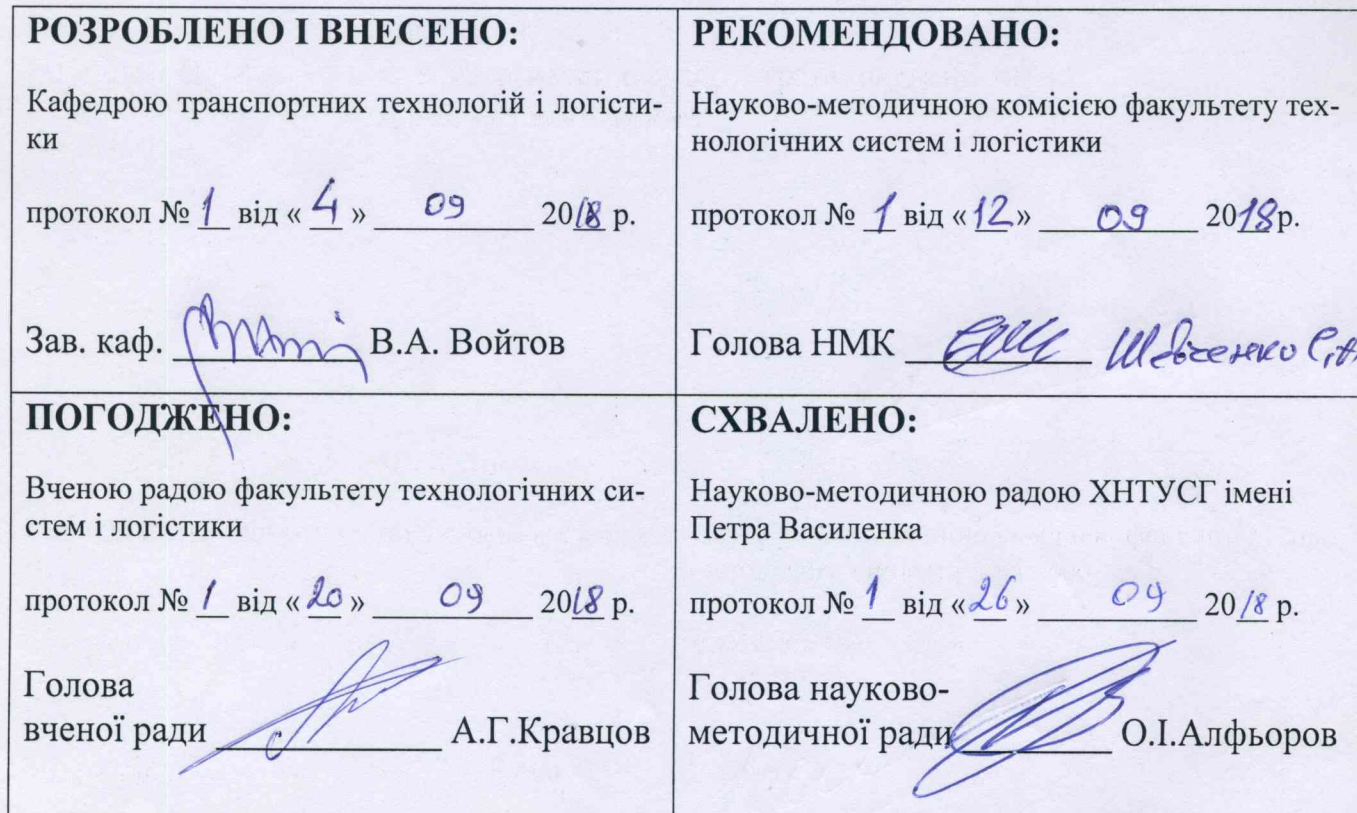 РОЗРОБЛЕНО І ВНЕСЕНО:
Кафедрою транспортних технологій і логісти-
ки
протокол № 1 від « 4 » 09 2018 р.
Зав. каф. В.А. Войтов
РЕКОМЕНДОВАНО:
Науково-методичною комісією факультету тех-
нологічних систем і логістики
протокол № 1 від «12» 09 2018р.
Голова НМК
ПОГОДЖЕНО:
Вченою радою факультету технологічних си-
стем і логістики
протокол № 1 від «20» 09 2018 р.
Голова
вченої ради А.Г.Кравцов
СХВАЛЕНО:
Науково-методичною радою ХНТУСГ імені
Петра Василенка
протокол № 1 від «26» 09 2018 р.
Голова науково-
методичної ради О.І.Алфьоров